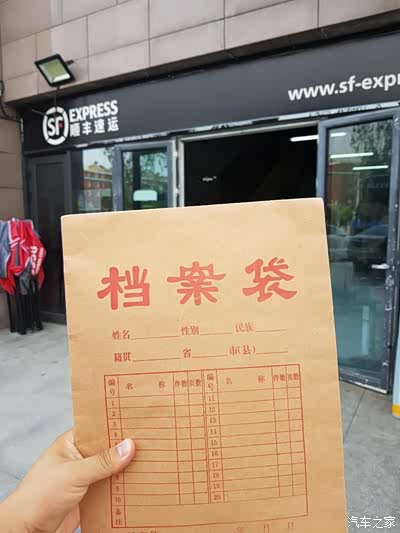 SF EXPRESS
顺丰速运
www.sf-expr
档案袋
姓名 性别 民族
籍贯 省 市(县)
编号 名称 件数 页数 编号 名称 件数 页数
1 11
2 12
3 13
4 14
15
16
17
8 18
9 19
10 20
备注
年 月 日
汽车之家